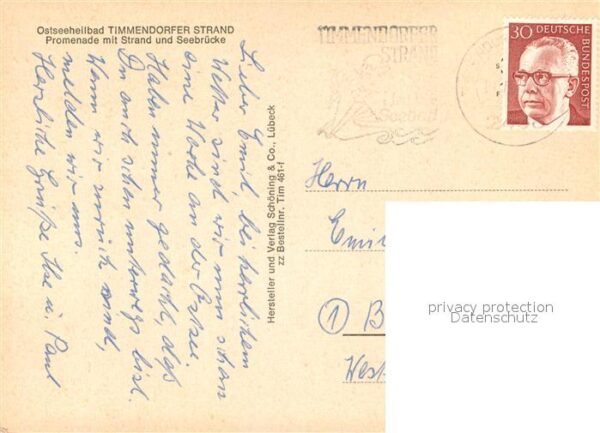 Ostseeheilbad TIMMENDORFER STRAND
Promenade mit Strand und Seebrücke
Lieber Emil, bei herrlichem
Wetter sind wir nun schon
eine Woche an der Ostsee.
Haben immer gedacht, daß
Du auch schon unterwegs bist.
Wenn wir zurück sind,
melden wir uns.
Herzliche Grüße Ilse u. Paul
Hersteller und Verlag Schöning & Co., Lübeck
zz Bestellnr. Tim 461-f
TIMMENDORFER
STRAND
30 DEUTSCHE
BUNDESPOST
Herrn
Emil
1 B
West
privacy protection
Datenschutz